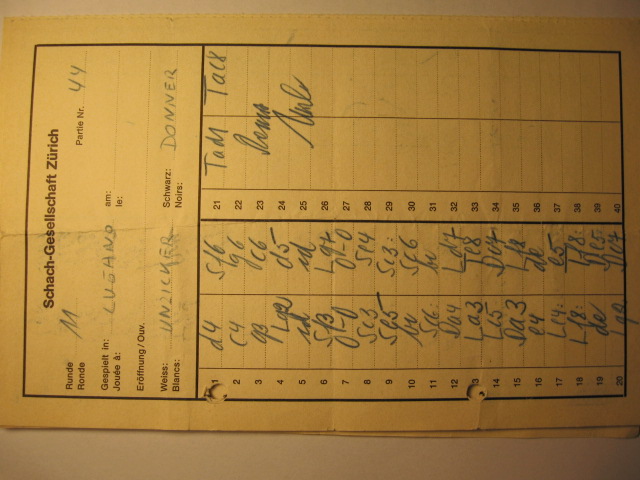 Schach-Gesellschaft Zürich
Runde
Ronde 11 Partie Nr. 44
Gespielt in: LUGANO am:
Jouée à: le:
Eröffnung/Ouv.
Weiss: UNZICKER Schwarz: DONNER
Blancs: Noirs:
1 d4 Sf6 21 Tad1 Tac8
2 c4 g6 22
3 g3 c6 23 Remis
4 Lg2 d5 24
5 cd cd 25
6 Sf3 Lg7 26
7 0-0 0-0 27
8 Sc3 Se4 28
9 Se5 Sc3: 29
10 bc Sc6 30
11 Sc6: bc 31
12 Da4 Ld7 32
13 La3 Te8 33
14 Lc5 34
15 Da3 Lf8 35
16 e4 de 36
17 Le4: e5 37
18 Lf8: 38
19 de De5: 39
20 40